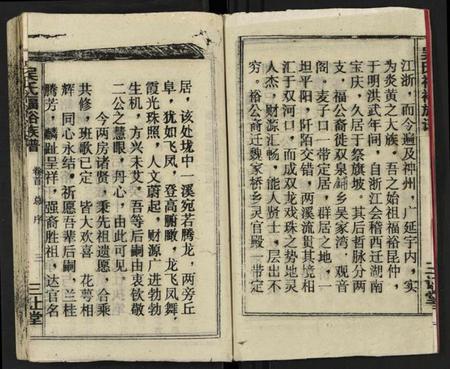 江浙，而今遍及神州，广延宇内，实
为炎黄之大族，吾之始祖福裕昆仲，
于明洪武年间，自浙江会稽西迁湖南
宝庆，久居于祭旗坡。其后哲脉分两
支，福公裔徙双泉铺乡吴家湾，观音
阁，麦子口，一带定居，群居之地，一
坦平阳，阡陌交错，两溪流贯其境相
汇于双河口，而成双龙戏珠之势地灵
人杰，财源汇畅，能人贤士，层出不
穷。裕公裔迁魏家桥乡灵官殿一带定
吴氏福裕族谱
卷首
总序
三让堂
居，该处垅中一溪宛若腾龙，两旁丘
阜，犹如飞凤，登高俯瞰，龙飞凤舞，
霞光珠照，人文蔚起，财源广进勃勃
生机，方兴未艾，吾等后嗣由衷钦敬
二公之慧眼，丹心，由此可见
今两房诸贤，秉先祖遗愿，合乘
共修，班歌已定 皆大欢喜 花萼相
辉 同心永结，祈愿吾辈后嗣 兰桂
腾芳，麟趾呈祥，强裔胜祖，达官名